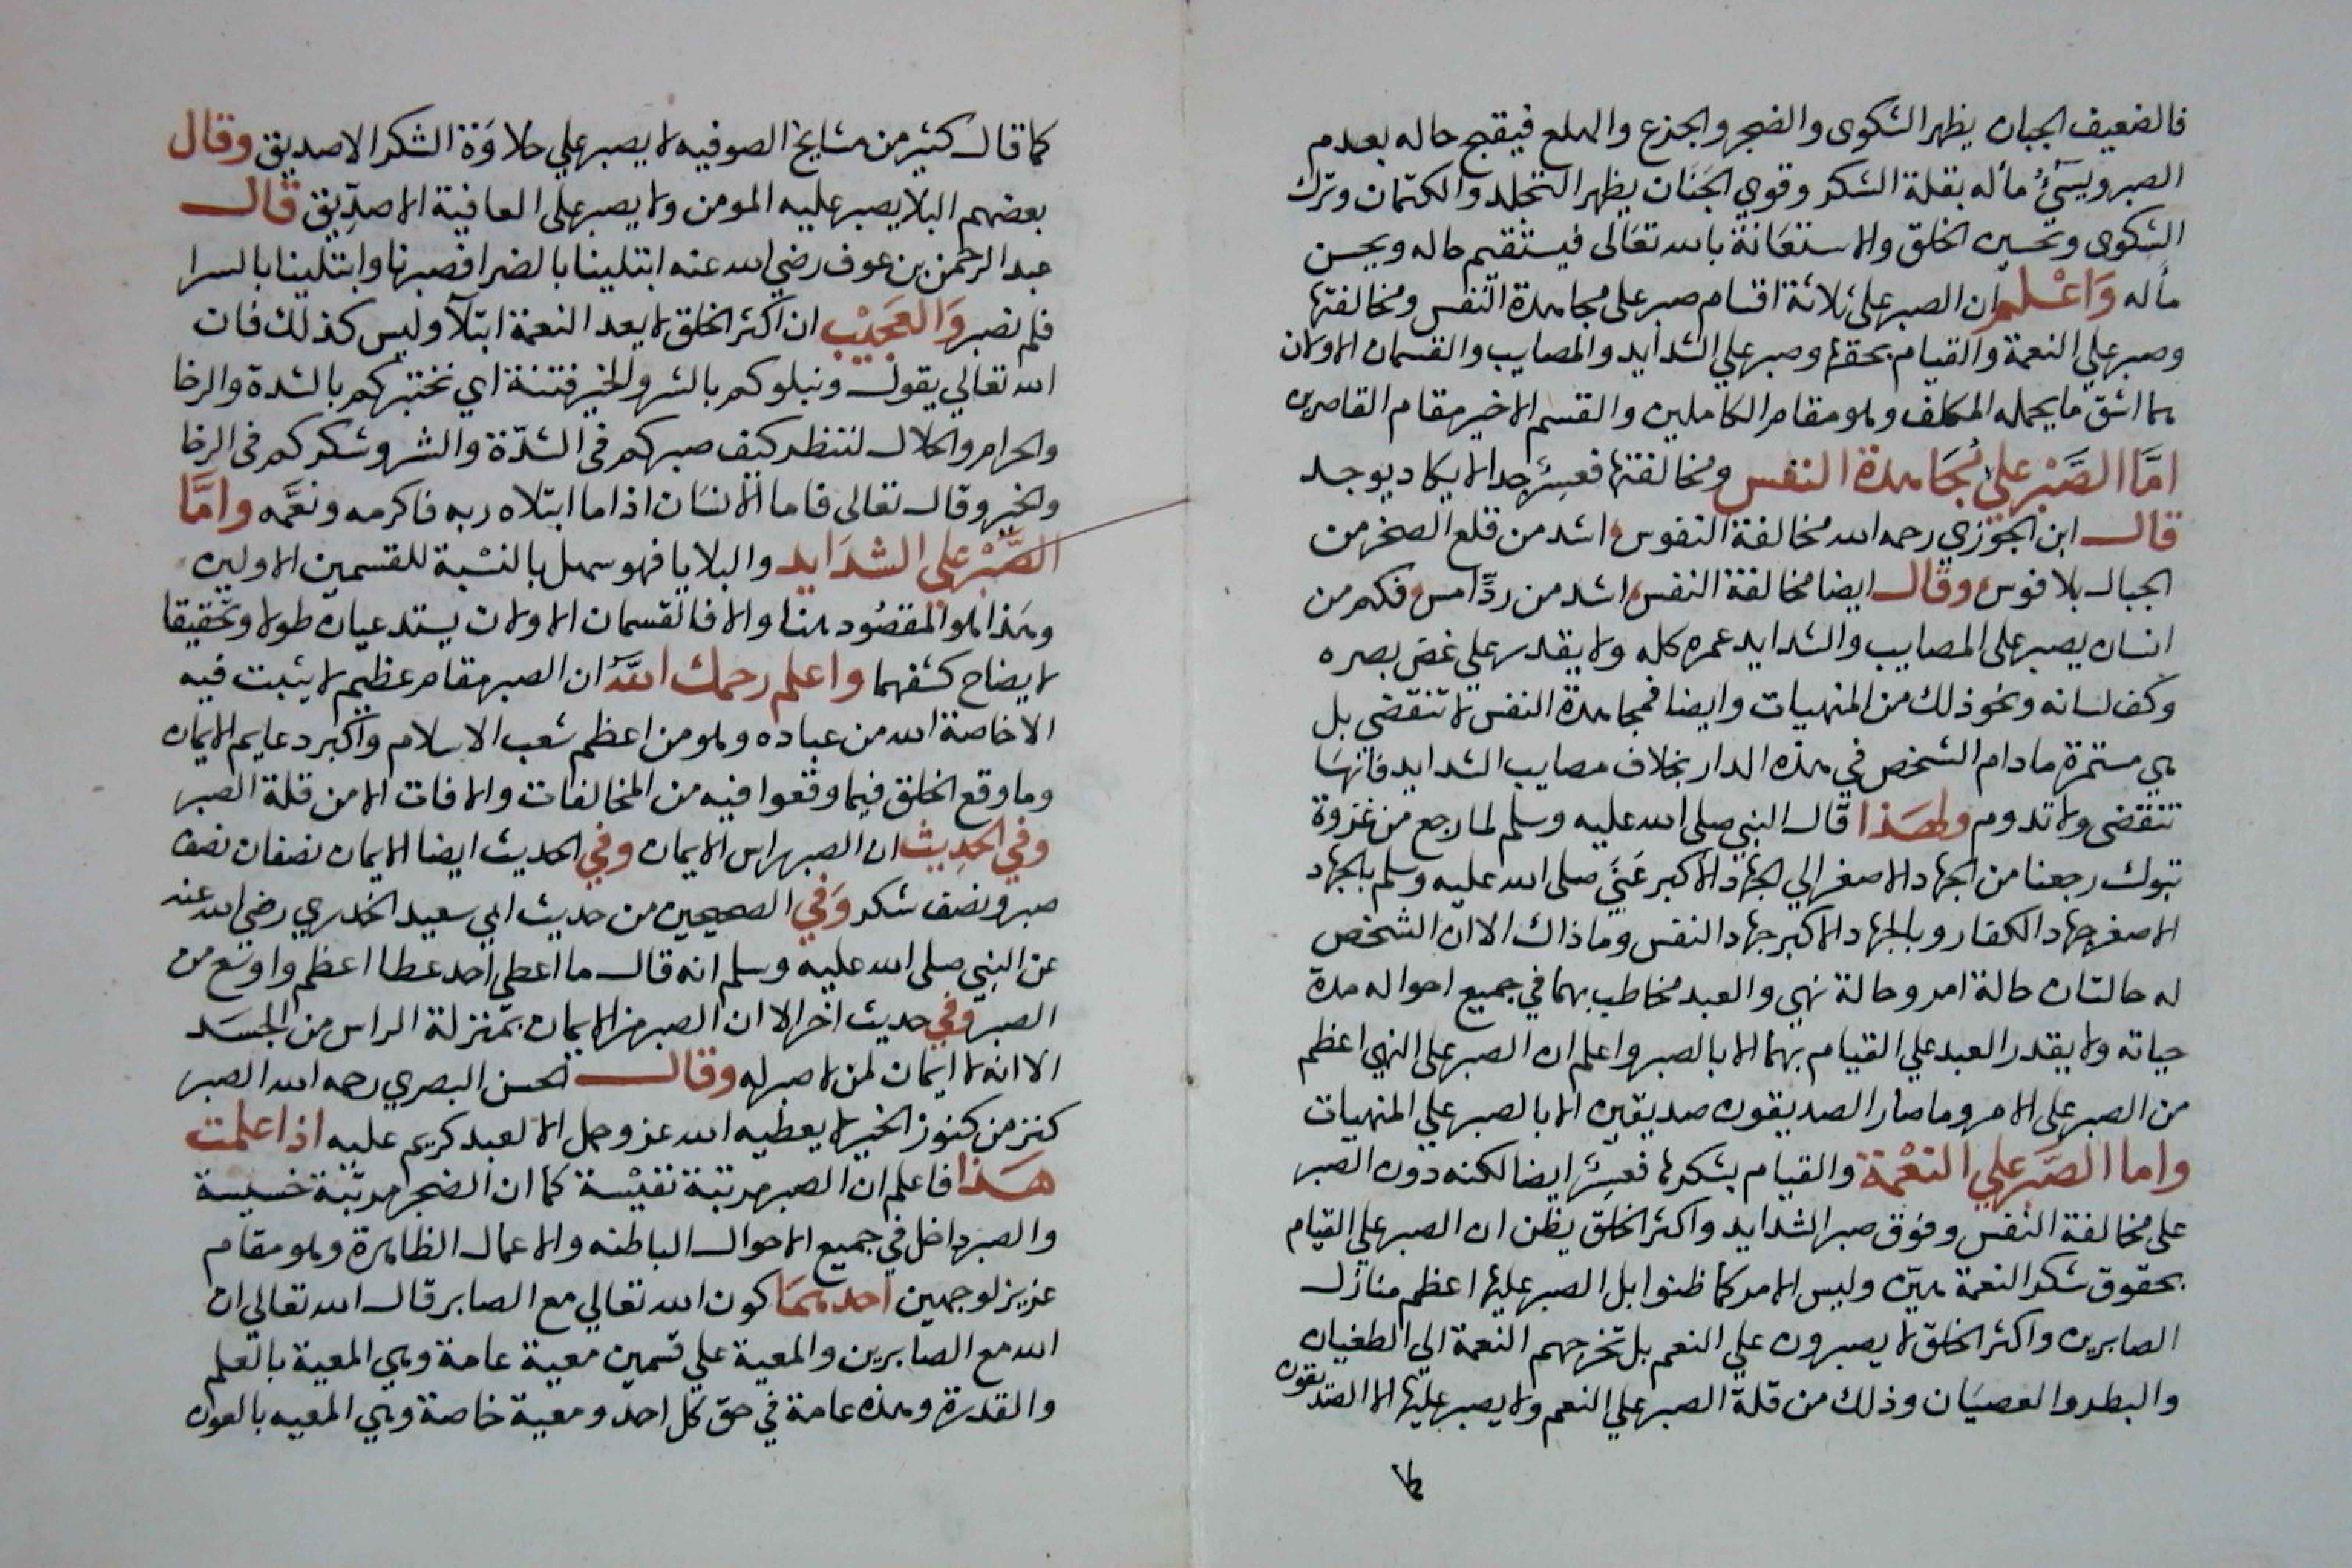 فالضعيف الجبان يظهر الشكوى والضجر والجزع والهلع فيقبح حاله بعدم
الصبر ويسيئ مأله بقلة الشكر وقوي الجَنَان يظهر التجلد والكتمان وترك
الشكوى وتحسين الخلق والاستعَانة بالله تعَالى فيستقيم حاله ويحسن
مأله وَاعْلم ان الصبر على ثلاثة اقسام صبر على مجاهدة النفس ومخالفتها
وصبر علي النعمة والقيام بحقها وصبر علي الشدايد والمصايب والقسمان الاولان
هما اشق ما يحمله المكلف وهو مقام الكاملين والقسم الاخير مقام القاصرين
امَّا الصَّبْر علي مُجَاهدة النفس ومخالفتها فعسِرٌ جدا لا يكاد يوجد
قال ابن الجوزي رحمه الله مخالفة النفوس اشد من قلع الصخر من
الجبال بلا فوس وقال ايضا مخالفة النفس اشد من ردِّ امس فكم من
انسان يصبر على المصايب والشدايد عمره كله ولا يقدر علي غض بصره
وكف لسانه ونحو ذلك من المنهيات وايضا فمجاهدة النفس لا تنقضى بل
هي مستمرة ما دام الشخص في هذه الدار بخلاف مصايب الشدايد فانهَا
تنقضى ولا تدوم ولهَذا قال النبي صلى الله عليه وسلم لما رجع من غزوة
تبوك رجعنا من الجهاد الاصغر الي الجهاد الأكبر عَنَى صلى الله عليه وسلم بالجهاد
الاصغر جهاد الكفار وبالجهاد الاكبر جهاد النفس وما ذاك الا ان الشخص
له حالتان حالة امر وحالة نهي والعبد مخاطب بهما في جميع احواله مدة
حياته ولا يقدر العبد علي القيام بهما الا بالصبر واعلم ان الصبر على النهي اعظم
من الصبر على الامر وما صار الصديقون صديقين الا بالصبر علي المنهيات
واما الصَّبر علي النعْمة والقيام بشكرها فعسِرٌ ايضا لكنه دون الصبر
على مخالفة النفس وفوق صبر الشدايد واكثر الخلق يظن ان الصبر علي القيام
بحقوق شكر النعمة هيّن وليس الامر كما ظنوا بل الصبر عليها اعظم منازل
الصابرين واكثر الخلق لا يصبرون علي النعم بل تخرجهم النعمة الي الطغيان
والبطر والعصيَان وذلك من قلة الصبر علي النعم ولا يصبر عليها الا الصديقون
كما
كما قال كثير من مشايخ الصوفيه لا يصبر علي حلاوَة الشكر الا صديق وقال
بعضهم البلا يصبر عليه المومن ولا يصبر على العافية الا صدِّيق قال
عبد الرحمن بن عوف رضي الله عنه ابتلينا بالضرا فصبرنا وابتلينا بالسرا
فلم نصبر وَالعَجيْب ان اكثر الخلق لا يعد النعمة ابتلآ وليس كذلك فان
الله تعالي يقول ونبلوكم بالشر والخير فتنة اي نختبركم بالشدة والرخا
والحرام والحلال لننظر كيف صبركم في الشدّة والشر وشكركم في الرخا
والخير وقال تعالى فاما الانسَان اذا ما ابتلاه ربه فاكرمه ونعَّمه وامَّا
الصَّبْر على الشدَايد والبلايا فهو سهل بالنسْبة للقسمين الاولين
وهَذا هو المقصُود هنا والا فالقسمان الاولان يستدعيان طولا وتحقيقا
لايضاح كشفهما واعلم رحمك اللهُ ان الصبر مقام عظيم لا يثبت فيه
الا خاصة الله من عباده وهو من اعظم شعب الاسلام وأكبر دعايم الايمان
وما وقع الخلق فيما وقعوا فيه من المخالفات والافات الا من قلة الصبر
وفي الحدِيث ان الصبر راس الايمان وفي الحديث ايضا الايمان نصفان نصف
صبر ونصف شكر وَفي الصحيحين من حديث ابي سعيد الخدري رضي الله عنه
عن النبي صلى الله عليه وسلم انه قال ما اعطي احد عطا اعظم واوسع من
الصبر وفي حديث اخر الا ان الصبر من الايمان بمنزلة الراس من الجسَد
الا انه لا ايمان لمن لا صبر له وقال الحسن البصري رحمه الله الصبر
كنز من كنوز الخير لا يعطيه الله عز وجل الا لعبد كريم عليه اذا علمت
هَذا فاعلم ان الصبر مرتبة نفيْسة كما ان الضجر مرتبة خسيسة
والصبر داخل في جميع الاحوال الباطنه والاعمال الظاهرة وهو مقام
عزيز لوجهين احدهمَا كون الله تعالي مع الصابر قال الله تعالي ان
الله مع الصابرين والمعية علي قسمين معية عامة وهي المعية بالعلم
والقدرة وهذه عامة في حق كل احد ومعية خاصة وهي المعيه بالعون